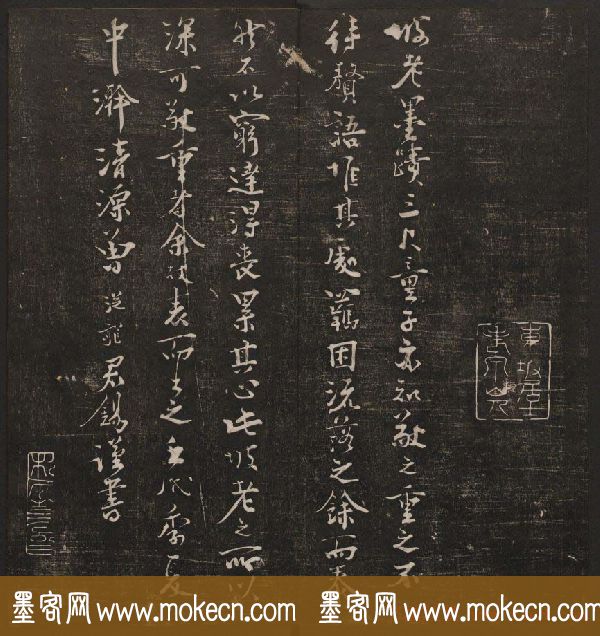 坡老墨蹟三尺童子亦知敬之重之不
待贅語惟其處羈困流落之餘而
然不以窮達得喪累其心此坡老之所以
深可敬重者余故表而出之
中澣清源 君錫謹書
墨客网 www.mokecn.com 墨客网 www.mokecn.com